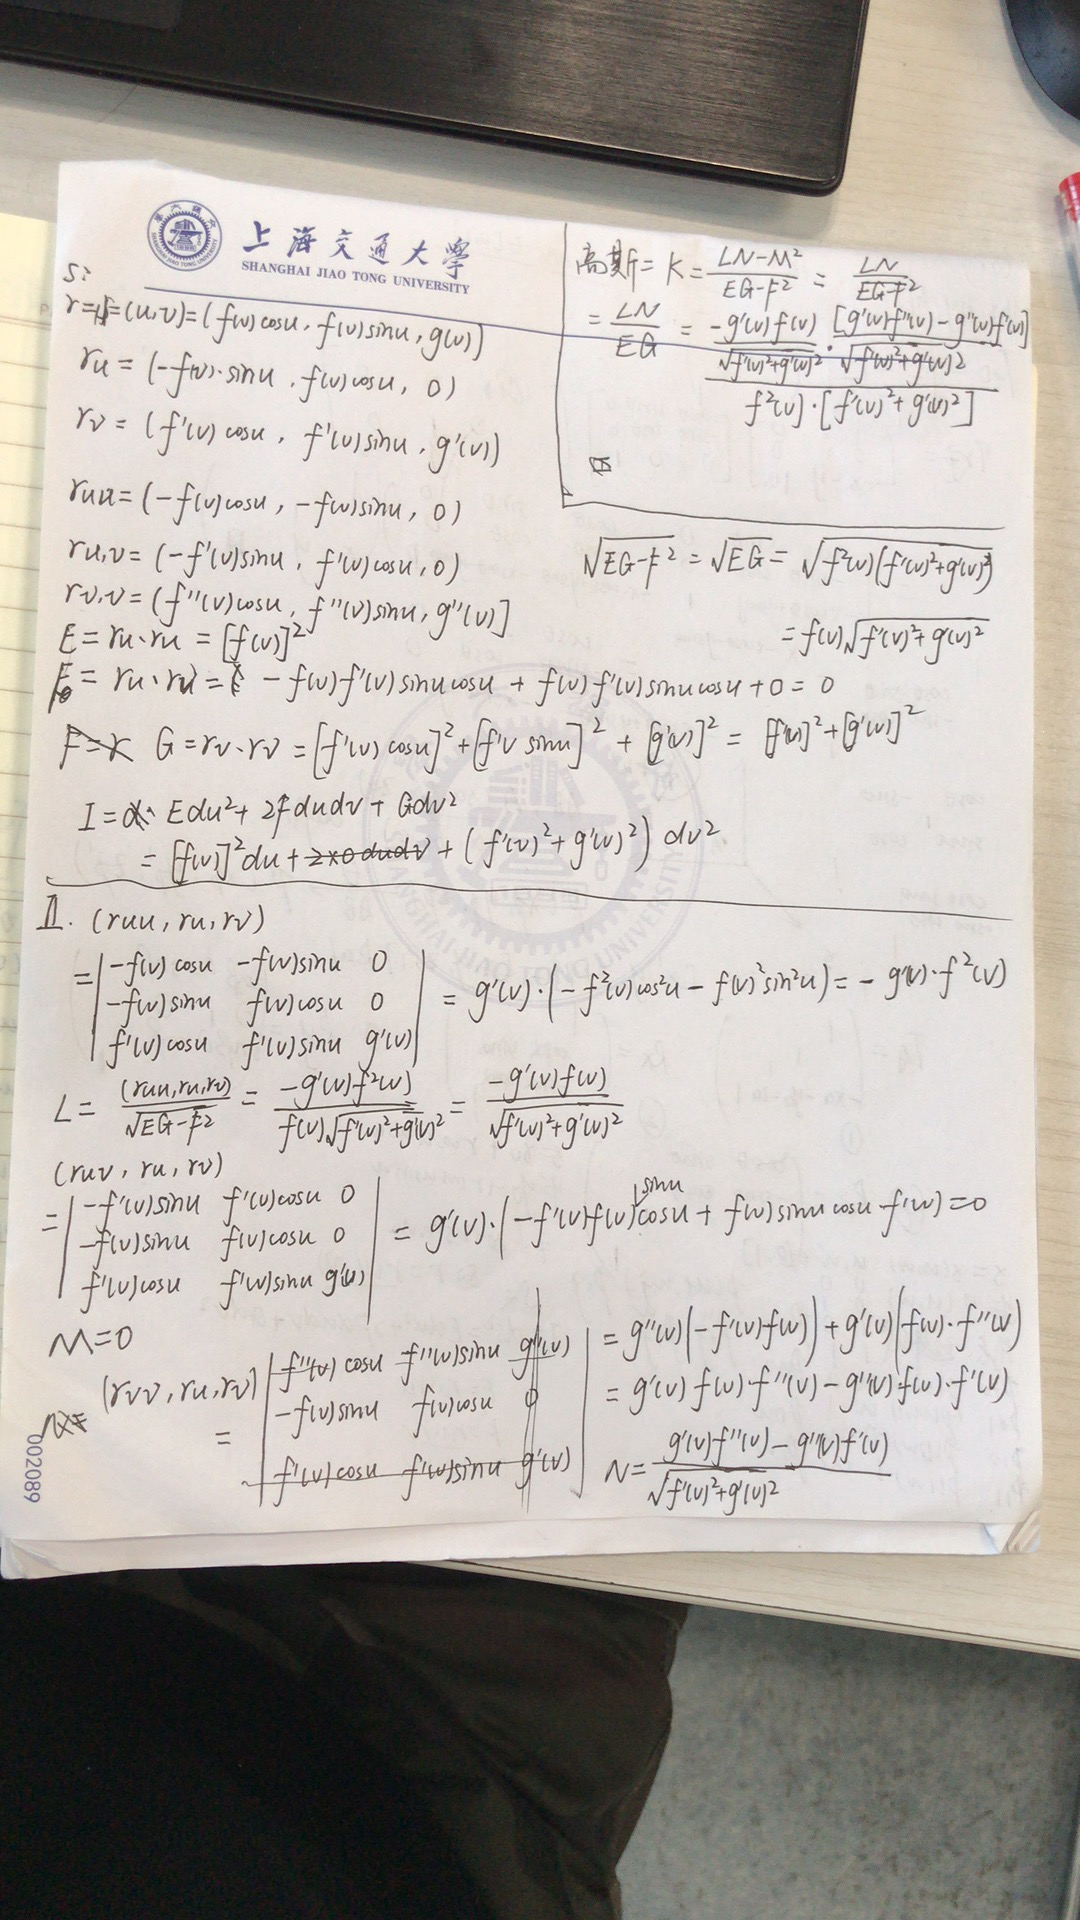 上海交通大學
SHANGHAI JIAO TONG UNIVERSITY
S:
r=(u,v)=(f(v)cosu, f(v)sinu, g(v))
ru=(-f(v)·sinu, f(v)cosu, 0)
rv=(f'(v)cosu, f'(v)sinu, g'(v))
ruu=(-f(v)cosu, -f(v)sinu, 0)
ru,v=(-f'(v)sinu, f'(v)cosu, 0)
rv,v=(f''(v)cosu, f''(v)sinu, g''(v)]
E=ru·ru=[f(v)]²
F=ru·rv=-f(v)f'(v)sinucosu+f(v)f'(v)sinucosu+0=0
G=rv·rv=[f'(v)cosu]²+[f'v sinu]²+[g'(v)]²=[f'(v)]²+[g'(v)]²
I=Edu²+2Fdudv+Gdv²
=[f(v)]²du+2×0dudv+(f'(v)²+g'(v)²)dv²
高斯=K=(LN-M²)/(EG-F²)=LN/(EG-F²)
=LN/EG=(-g'(v)f(v)/√f'(v)²+g'(v)²·[g'(v)f''(v)-g''(v)f'(v)]/√f'(v)²+g'(v)²)/(f²(v)·[f'(v)²+g'(v)²])
√EG-F²=√EG=√f²(v)(f'(v)²+g'(v)²)
=f(v)√f'(v)²+g'(v)²
II. (ruu, ru, rv)
=|-f(v)cosu -f(v)sinu 0
-f(v)sinu f(v)cosu 0
f'(v)cosu f'(v)sinu g'(v)|
=g'(v)·(-f²(v)cos²u-f(v)²sin²u)=-g'(v)·f²(v)
L=(ruu,ru,rv)/√EG-F²=-g'(v)f²(v)/f(v)√f'(v)²+g'(v)²=-g'(v)f(v)/√f'(v)²+g'(v)²
(ruv, ru, rv)
=|-f'(v)sinu f'(v)cosu 0
-f(v)sinu f(v)cosu 0
f'(v)cosu f'(v)sinu g'(v)|
=g'(v)·(-f'(v)f(v)sinucosu+f(v)sinucosu·f'(v))=0
M=0
(rvv, ru, rv)
=|f''(v)cosu f''(v)sinu g''(v)
-f(v)sinu f(v)cosu 0
f'(v)cosu f'(v)sinu g'(v)|
=g''(v)(-f'(v)f(v))+g'(v)(f(v)·f''(v))
=g'(v)f(v)·f''(v)-g''(v)f(v)·f'(v)
N=(g'(v)f''(v)-g''(v)f'(v))/√f'(v)²+g'(v)²
002089